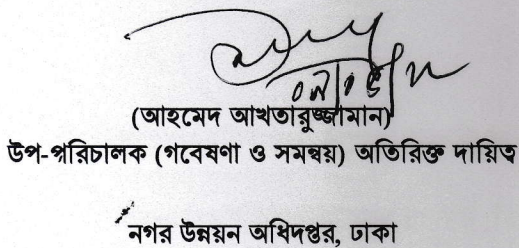 (আহমেদ আখতারুজ্জামান)
উপ-পরিচালক (গবেষণা ও সমন্বয়) অতিরিক্ত দায়িত্ব
নগর উন্নয়ন অধিদপ্তর, ঢাকা